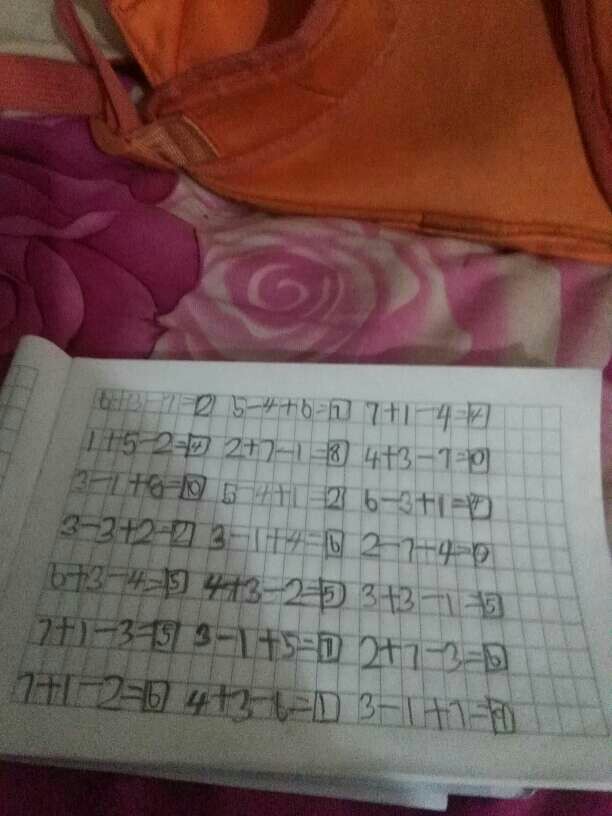 6+3-7=2 5-4+6=7 7+1-4=4
1+5-2=4 2+7-1=8 4+3-7=0
3-1+8=10 5-4+1=2 6-3+1=4
3-3+2=2 3-1+4=6 2-7+4=0
6+3-4=5 4+3-2=5 3+3-1=5
7+1-3=5 3-1+5=7 2+7-3=6
7+1-2=6 4+3-6=1 3-1+7=9